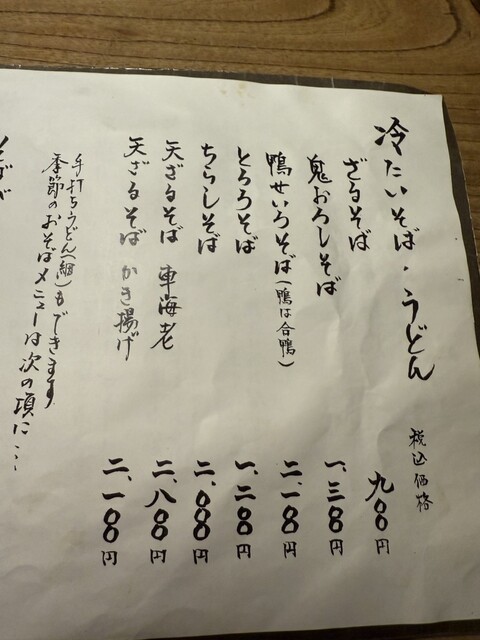 冷たいそば・うどん
税込価格
ざるそば 九〇〇円
鬼おろしそば 一、三〇〇円
鴨せいろそば(鴨は合鴨) 二、一〇〇円
とろろそば 一、二〇〇円
ちらしそば 二、〇〇〇円
天ざるそば 車海老 二、八〇〇円
天ざるそば かき揚げ 二、一〇〇円
手打ちうどん(細)もできます
季節のおそばメニューは次の項に…